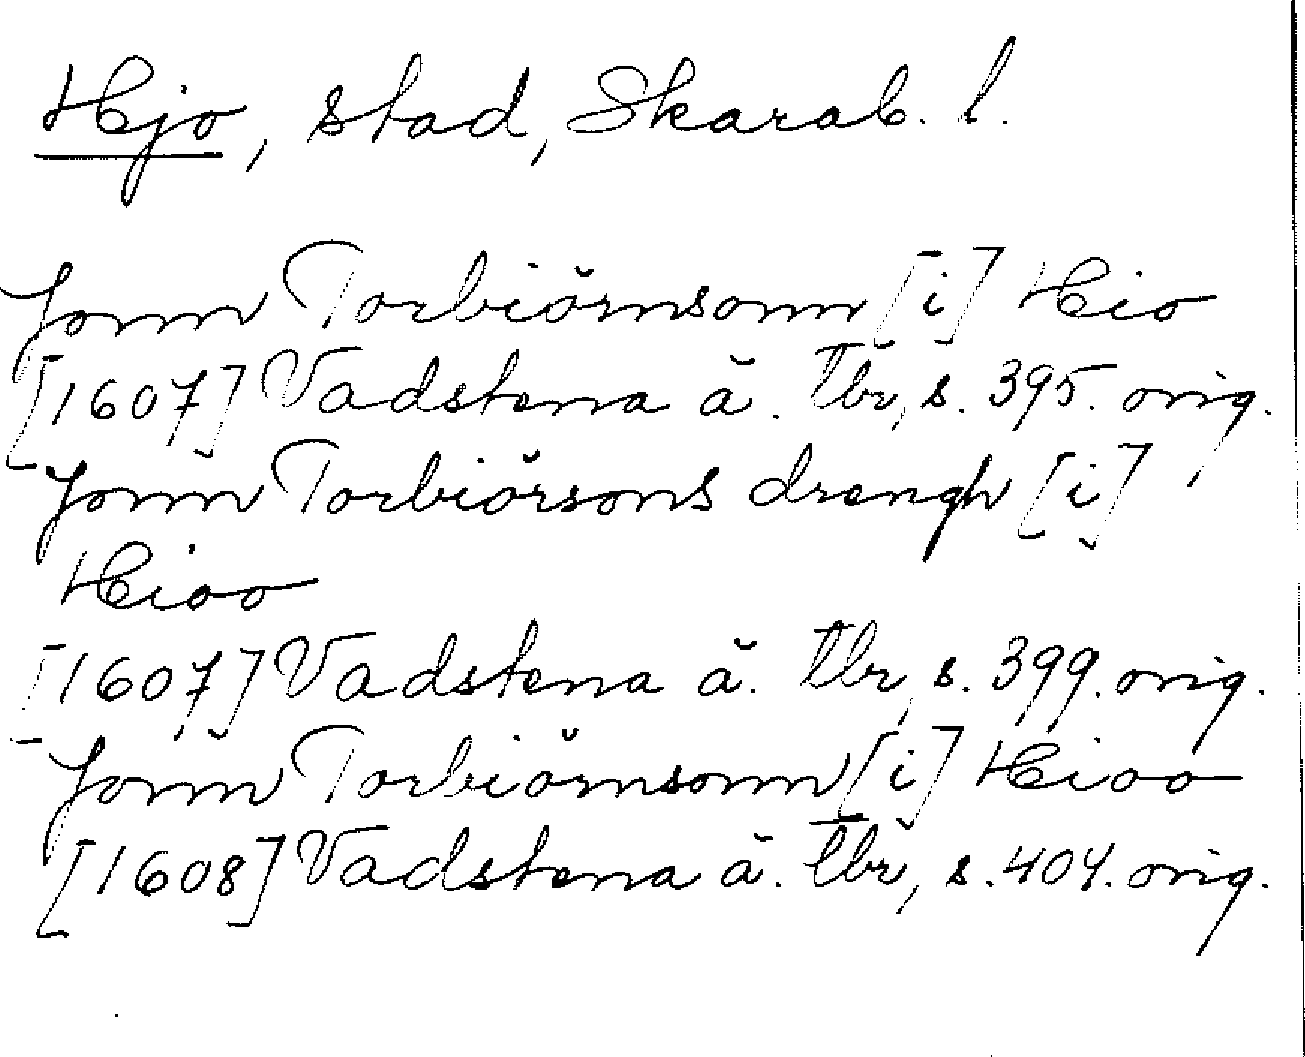 Hjo, stad, Skarab. l.
Jonn Torbiörnsonn [i] Hio
[1607] Vadstena ä. tbr, s. 395. orig.
Jonn Torbiörsons drengh [i]
Hioo
[1607] Vadstena ä. tbr, s. 399. orig.
Jonn Torbiörnsonn [i] Hioo
[1608] Vadstena ä. tbr, s. 404. orig.